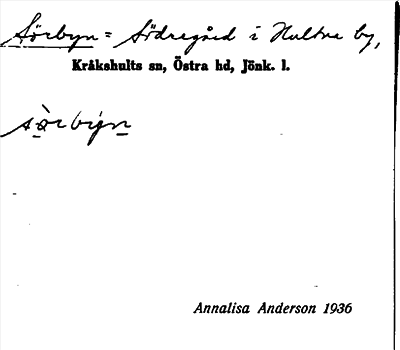 Sörbyn = Södregård i Hultna by,
Kråkshults sn, Östra hd, Jönk. l.
sò̱rbyṉ
Annalisa Anderson 1936